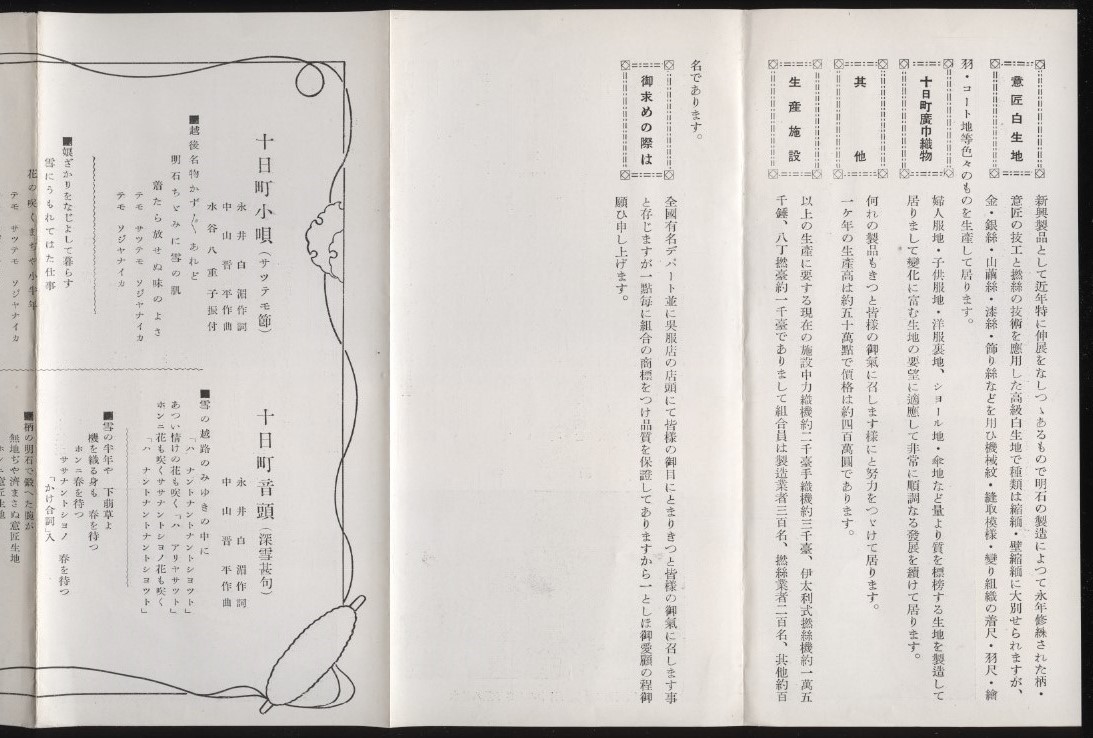 意匠白生地
新興製品として近年特に伸展をなしつゝあるもので明石の製造によつて永年修練された柄・
意匠の技工と撚絲の技術を應用した高級白生地で種類は縮緬・壁縮緬に大別せられますが、
金・銀絲・山繭絲・漆絲・飾り絲などを用ひ機械紋・縫取模様・變り組織の着尺・羽尺・繪
羽・コート地等色々のものを生産して居ります。
十日町廣巾織物
婦人服地・子供服地・洋服裏地、ショール地・傘地など量より質を標榜する生地を製造して
居りまして變化に富む生地の要望に適應して非常に順調なる發展を續けて居ります。
其他
何れの製品もきつと皆様の御氣に召します様にと努力をつゞけて居ります。
一ケ年の生産高は約五十萬點で價格は約四百萬圓であります。
生産施設
以上の生産に要する現在の施設中力織機約二千臺手織機約三千臺、伊太利式撚絲機約一萬五
千錘、八丁撚臺約一千臺でありまして組合員は製造業者三百名、撚絲業者二百名、其他約百
名であります。
御求めの際は
全國有名デパート並に呉服店の店頭にて皆様の御目にとまりきつと皆様の御氣に召します事
と存じますが一點毎に組合の商標をつけ品質を保證してありますから一としほ御愛顧の程御
願ひ申し上げます。
十日町小唄(サツテモ節)
永井白湄作詞
中山晋平作曲
水谷八重子振付
■越後名物かず〱あれど
明石ちゞみに雪の肌
着たら放せぬ味のよさ
テモ サツテモ ソジヤナイカ
テモ ソジヤナイカ
■娘ざかりをなじよして暮らす
雪にうもれてはた仕事
花の咲くまぢや小半年
テモ サツテモ ソジヤナイカ
十日町音頭(深雪甚句)
永井白湄作詞
中山晋平作曲
■雪の越路のみゆきの中に
「ハ ナントナントナントシヨツト」
あつい情けの花も咲く「ハ アリヤサツト」
ホンニ花も咲くササナントシヨノ花も咲く
「ハ ナントナントナントシヨツト」
■雪の半年や 下萠草よ
機を織る身も 春を待つ
ホンニ春を待つ
ササナントシヨノ 春を待つ
「かけ合詞」入
■柄の明石で鍛へた腕が
無地ぢや濟まさぬ意匠生地